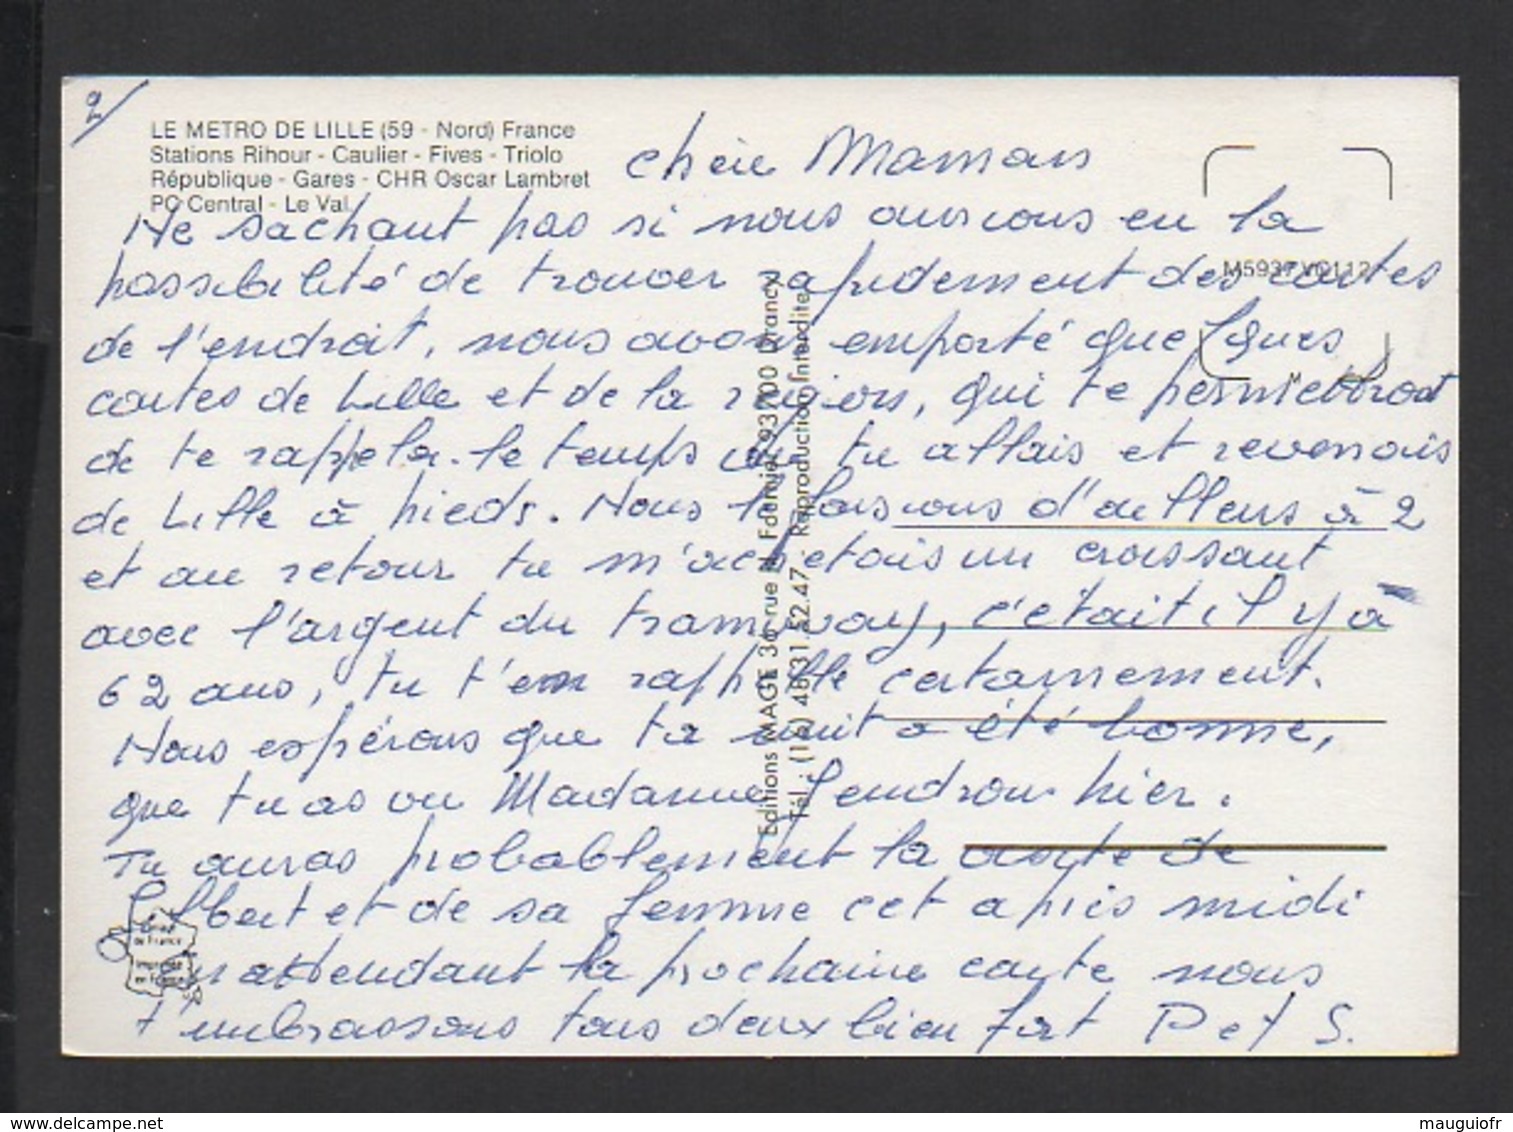 2/
LE METRO DE LILLE (59 - Nord) France
Stations Rihour - Caulier - Fives - Triolo
République - Gares - CHR Oscar Lambret
PC Central - Le Val
M5937 VC112
Chère Maman
Ne sachant pas si nous aurions eu la
possibilité de trouver rapidement des cartes
de l'endroit, nous avons emporté quelques
cartes de Lille et de la région, qui te permettront
de te rappeler le temps où tu allais et revenais
de Lille à pieds. Nous le faisions d'ailleurs à 2
et au retour tu m'achetais un croissant
avec l'argent du tramway, c'était il y a
62 ans, tu t'en rappelle certainement.
Nous espérons que ta nuit a été bonne,
que tu as vu Madame Gendron hier.
Tu auras probablement la carte de
Gilbert et de sa femme cet après midi
en attendant la prochaine carte nous
t'embrassons tous deux bien fort P et S.
Editions MAGE 36 rue 93700 Drancy
Tél. : (16) 48.31.52.47. Reproduction Interdite
de France
Imprimée
en France
delcampe.net
mauguiofr